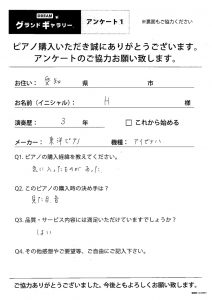 グランドギャラリー アンケート1 ※裏面もご協力ください
ピアノ購入いただき誠にありがとうございます。
アンケートのご協力お願い致します。
お住い： 愛知 県 市
お名前（イニシャル）： H 様
演奏歴： 3 年 □ これから始める
メーカー： 東洋ピアノ 機種：
Q1. ピアノの購入経緯を教えてください。
気に入ったものがあった
Q2. このピアノの購入時の決め手は？
見た目、音
Q3. 品質・サービス内容には満足いただけていますでしょうか？
はい
Q4. その他感想やご要望等、ご自由にご記入下さい。
ご協力ありがとうございました。今後ともよろしくお願い致します。